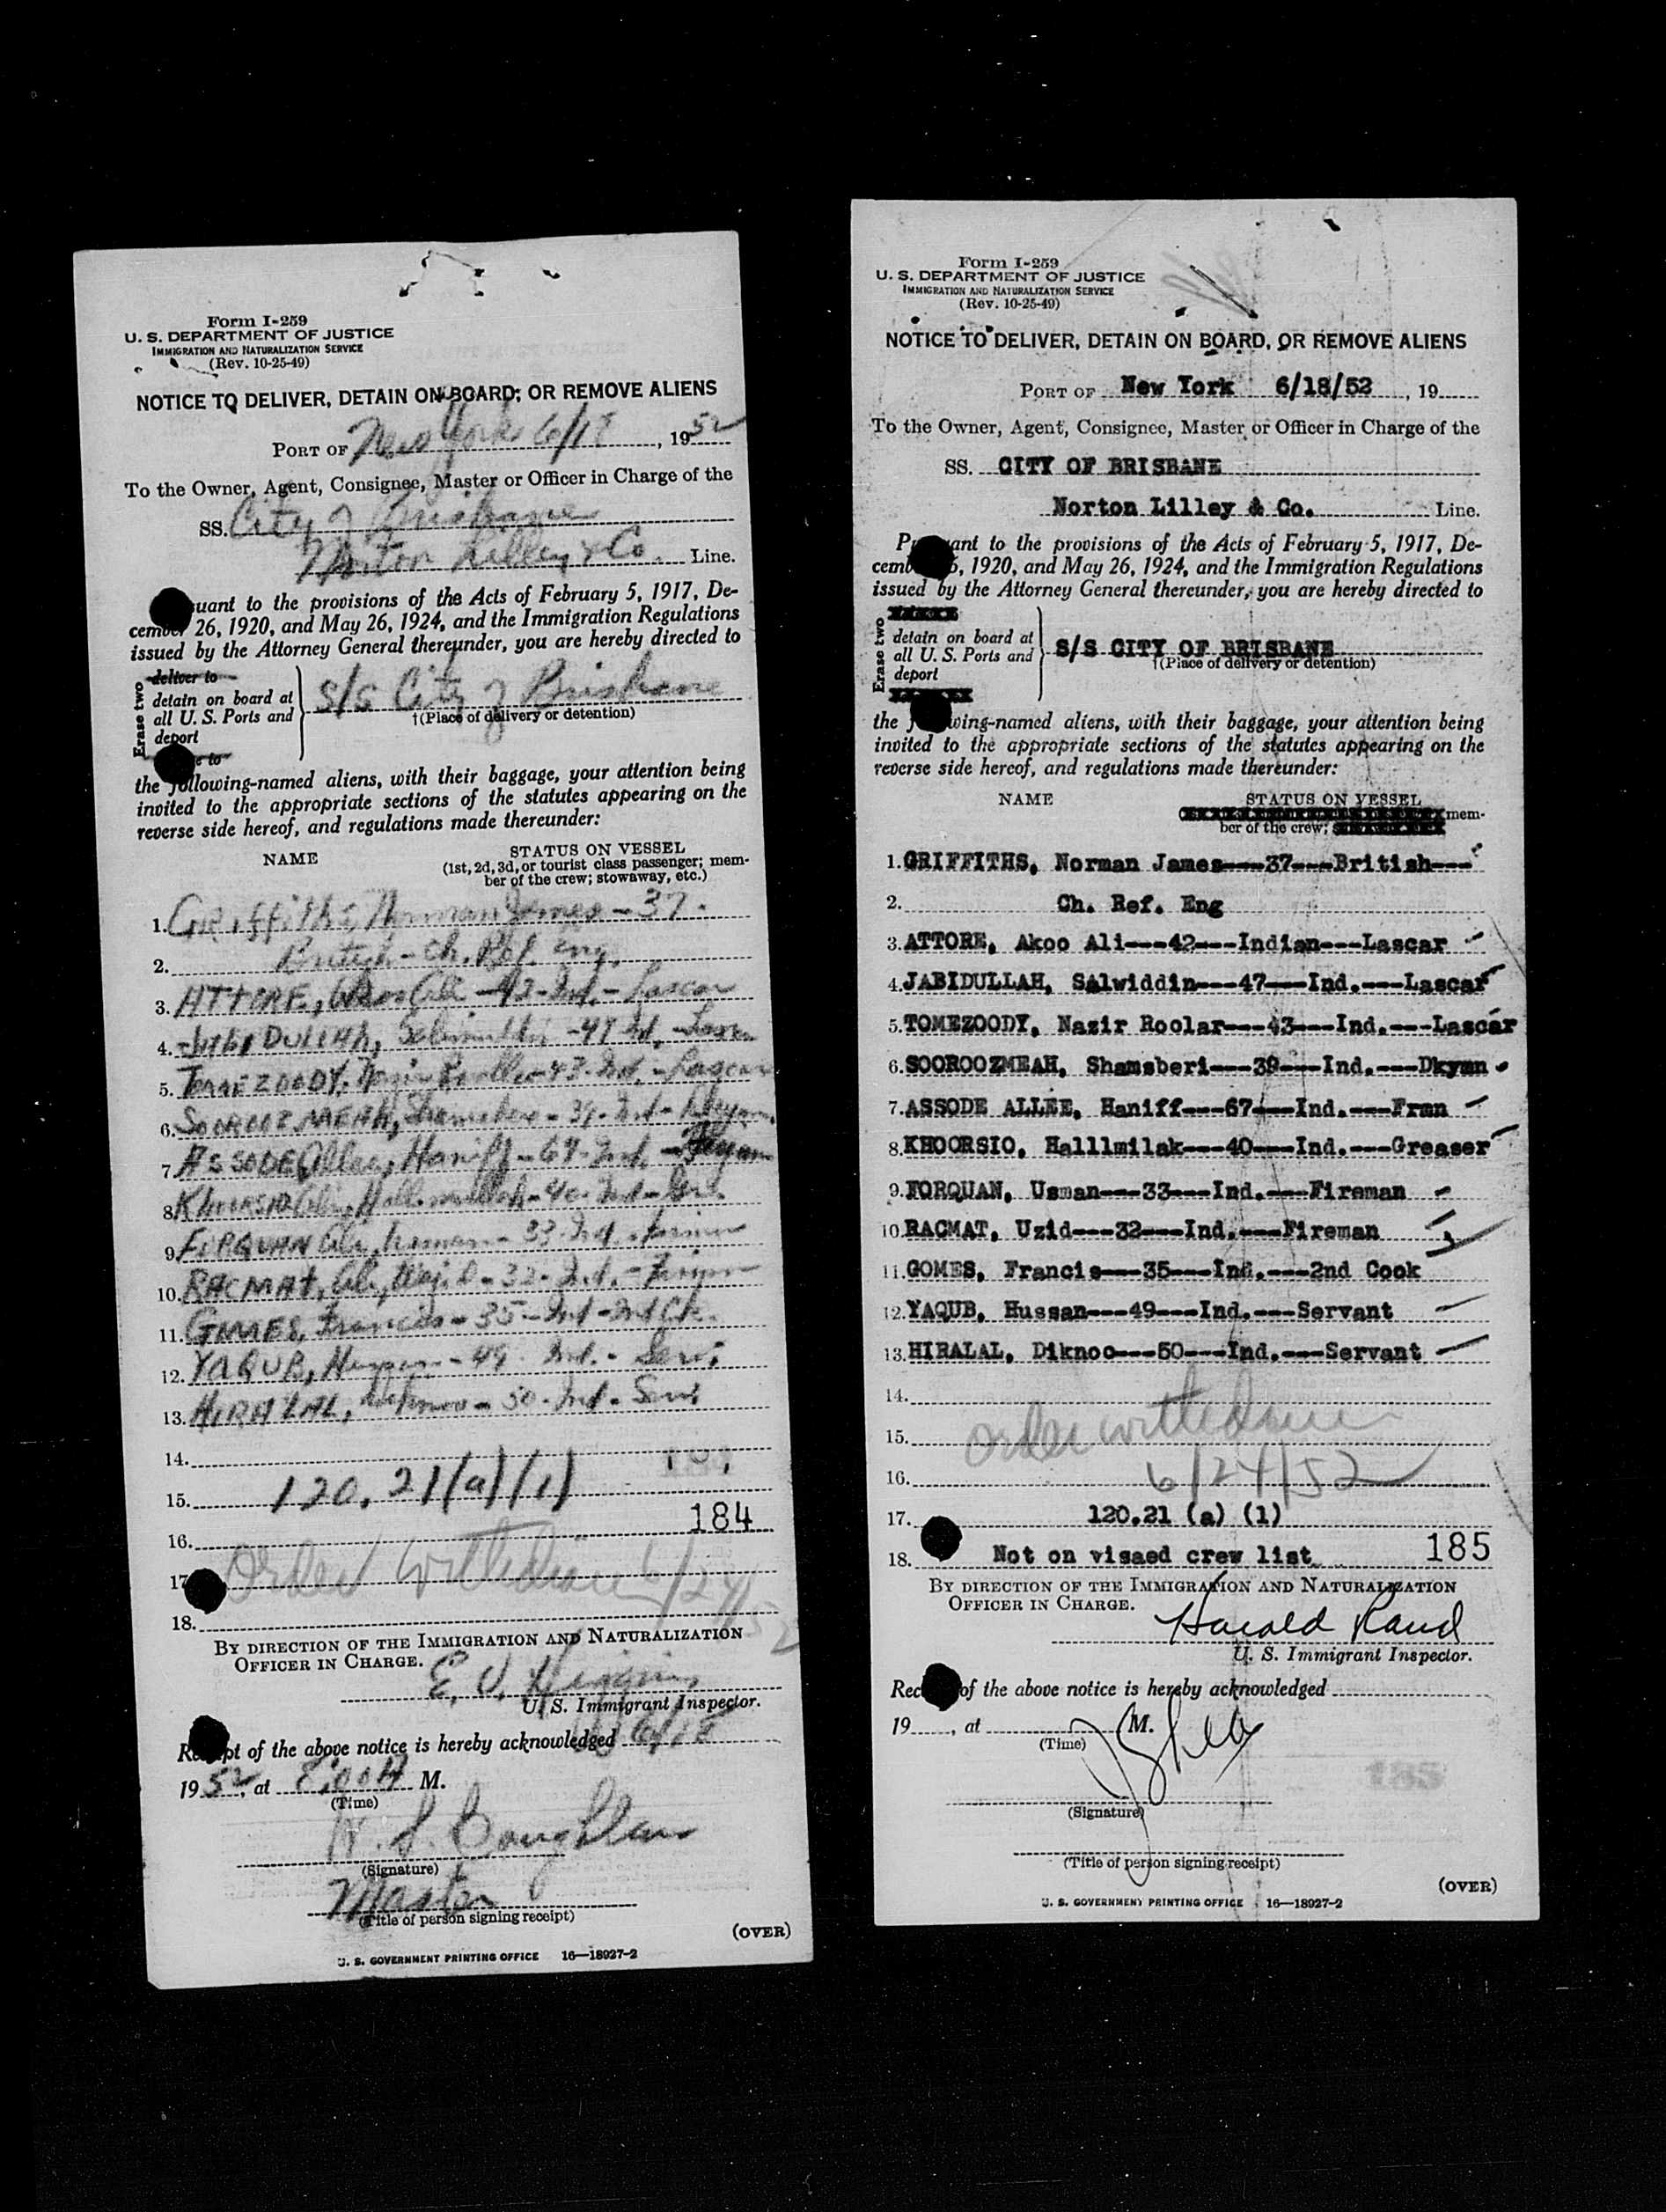 Form I-259
U. S. DEPARTMENT OF JUSTICE
IMMIGRATION AND NATURALIZATION SERVICE
(Rev. 10-25-49)
NOTICE TO DELIVER, DETAIN ON BOARD, OR REMOVE ALIENS
PORT OF New York 6/18, 1952
To the Owner, Agent, Consignee, Master or Officer in Charge of the
SS. City of Brisbane
Norton Lilley & Co. Line.
suant to the provisions of the Acts of February 5, 1917, De-
cember 26, 1920, and May 26, 1924, and the Immigration Regulations
issued by the Attorney General thereunder, you are hereby directed to
Erase two
deliver to
detain on board at
all U. S. Ports and
deport
e to
S/S City of Brisbane
†(Place of delivery or detention)
the following-named aliens, with their baggage, your attention being
invited to the appropriate sections of the statutes appearing on the
reverse side hereof, and regulations made thereunder:
NAME
STATUS ON VESSEL
(1st, 2d, 3d, or tourist class passenger; mem-
ber of the crew; stowaway, etc.)
1. Griffiths, Norman James - 37.
2. British - Ch. Ref. Eng.
3. ATTORE, Ali - 42 - Ind. - Lascar
4. - 47 Ind.
5. TOMEZOODY, - 43 - Ind. - Lascar
6. SOOROOZMEAH, - 39 - Ind -
7. ASSODE Allee, Haniff - 67 - Ind. -
8. - 40 - Ind -
9. FORQUAN Ali, - 33 - Ind.
10. RACMAT, Ali, - 32 - Ind. -
11. GOMES, Francis - 35 - Ind - 2nd Ck.
12. YAQUB, - 49 - Ind. - Serv.
13. HIRALAL, - 50 - Ind. - Serv
14.
15. 120.21(a)(1)
184
16.
17 Order withdrawn 6/24/52
18.
BY DIRECTION OF THE IMMIGRATION AND NATURALIZATION
OFFICER IN CHARGE.
E. V.
U. S. Immigrant Inspector.
pt of the above notice is hereby acknowledged 6/18
1952, at 8:00A M.
(Time)
(Signature)
Master
(Title of person signing receipt)
(OVER)
U. S. GOVERNMENT PRINTING OFFICE 16—18927-2
Form I-259
U. S. DEPARTMENT OF JUSTICE
IMMIGRATION AND NATURALIZATION SERVICE
(Rev. 10-25-49)
NOTICE TO DELIVER, DETAIN ON BOARD, OR REMOVE ALIENS
PORT OF New York 6/18/52, 19
To the Owner, Agent, Consignee, Master or Officer in Charge of the
SS. CITY OF BRISBANE
Norton Lilley & Co. Line.
P ant to the provisions of the Acts of February 5, 1917, De-
cemb , 1920, and May 26, 1924, and the Immigration Regulations
issued by the Attorney General thereunder, you are hereby directed to
Erase two
detain on board at
all U. S. Ports and
deport
S/S CITY OF BRISBANE
†(Place of delivery or detention)
the f wing-named aliens, with their baggage, your attention being
invited to the appropriate sections of the statutes appearing on the
reverse side hereof, and regulations made thereunder:
NAME
STATUS ON VESSEL
mem-
ber of the crew;
1. GRIFFITHS, Norman James---37---British---
2. Ch. Ref. Eng
3. ATTORE, Akoo Ali---42---Indian---Lascar
4. JABIDULLAH, Salwiddin---47---Ind.---Lascar
5. TOMEZOODY, Nazir Roolar---43---Ind.---Lascar
6. SOOROOZMEAH, Shamsberi---39---Ind.---Dkymn
7. ASSODE ALLEE, Haniff---67---Ind.---Fran
8. KHOORSIO, Halllmilak---40---Ind.---Greaser
9. FORQUAN, Usman---33---Ind.---Fireman
10. RACMAT, Uzid---32---Ind.---Fireman
11. GOMES, Francis---35---Ind.---2nd Cook
12. YAQUB, Hussan---49---Ind.---Servant
13. HIRALAL, Diknoo---50---Ind.---Servant
14.
15. Order withdrawn
16. 6/24/52
17. 120.21 (a) (1)
18. Not on visaed crew list
185
BY DIRECTION OF THE IMMIGRATION AND NATURALIZATION
OFFICER IN CHARGE.
Harold Rand
U. S. Immigrant Inspector.
Rec of the above notice is hereby acknowledged
19, at M.
(Time)
185
(Signature)
(Title of person signing receipt)
(OVER)
U. S. GOVERNMENT PRINTING OFFICE 16—18927-2